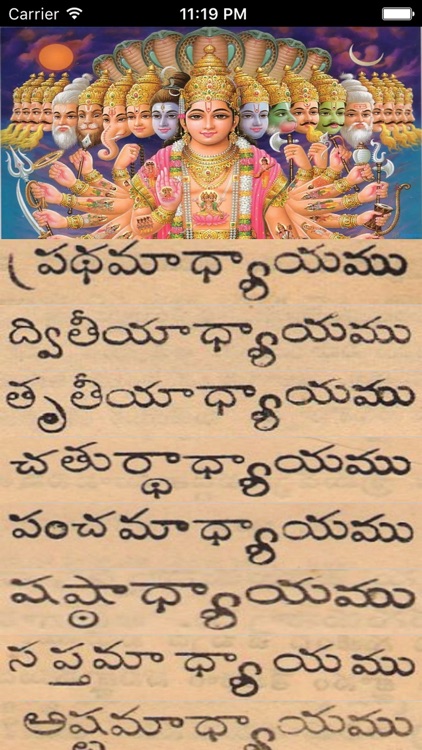 Carrier 11:19 PM
ప్రథమాధ్యాయము
ద్వితీయాధ్యాయము
తృతీయాధ్యాయము
చతుర్థాధ్యాయము
పంచమాధ్యాయము
షష్ఠాధ్యాయము
సప్తమాధ్యాయము
అష్టమాధ్యాయము